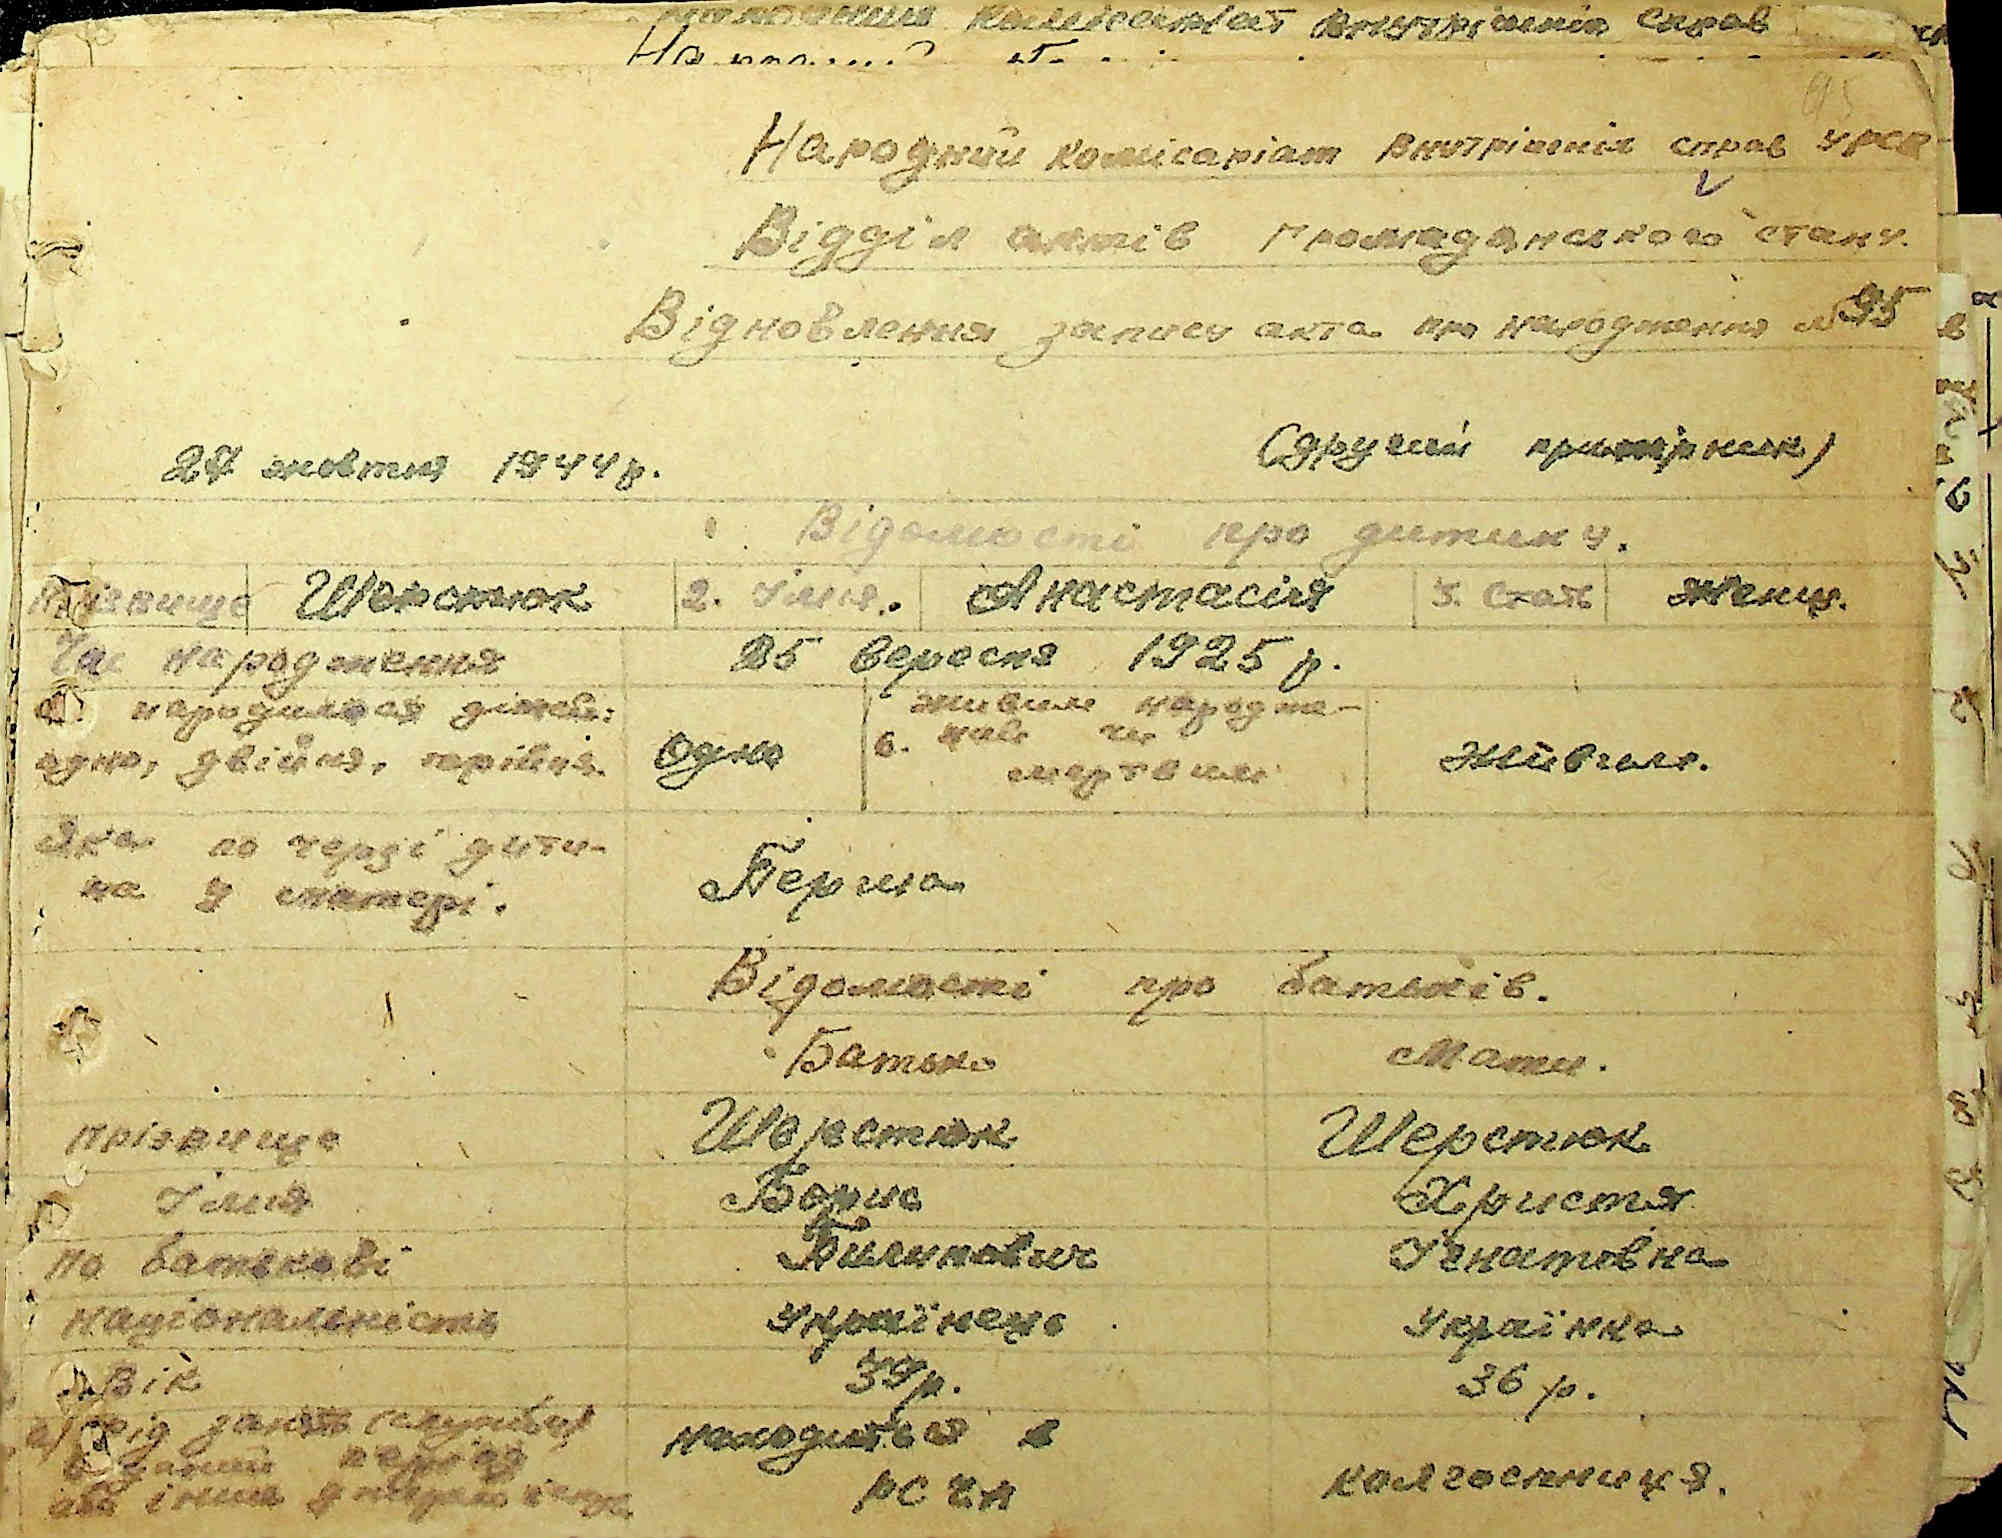 Народний комісаріат внутрішніх справ УРСР
Відділ актів громадянського стану.
Відновлення запису акта про народження № 95
27 жовтня 1944 р.
(другий примірник)
Відомості про дитину.
Прізвище Шерстюк 2. Імя. Анастасія 3. Стать Жіноч.
Час народження 25 вересня 1925 р.
народилося дітей:
одно, двійня, трійня. одно
живим народже-
6. не чи
мертвим
живим.
Яка по черзі дити-
на у матері. Перша
Відомості про батьків.
Батько Мати.
прізвище Шерстюк Шерстюк
Імя Борис Христя
по батькові Пилипович Ігнатовна
національність Українець Українка
Вік 39 р. 36 р.
а) рід занять (служби)
в даний період
находиться в
РСЧА колгоспниця.